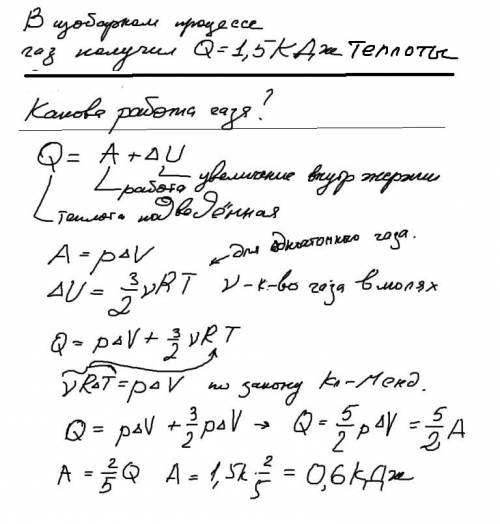 В изобарном процессе
газ получил Q=1,5КДж Теплоты
Какова работа газа?
Q = A + ΔU
увеличение внутр энергии
работа
теплота подведённая
A = pΔV
для одноатомного газа.
ΔU = 3/2 νRT ν - к-во газа в молях
Q = pΔV + 3/2 νRT
νRΔT = pΔV по закону Кл-Менд.
Q = pΔV + 3/2 pΔV → Q = 5/2 pΔV = 5/2 A
A = 2/5 Q A = 1,5к · 2/5 = 0,6кДж